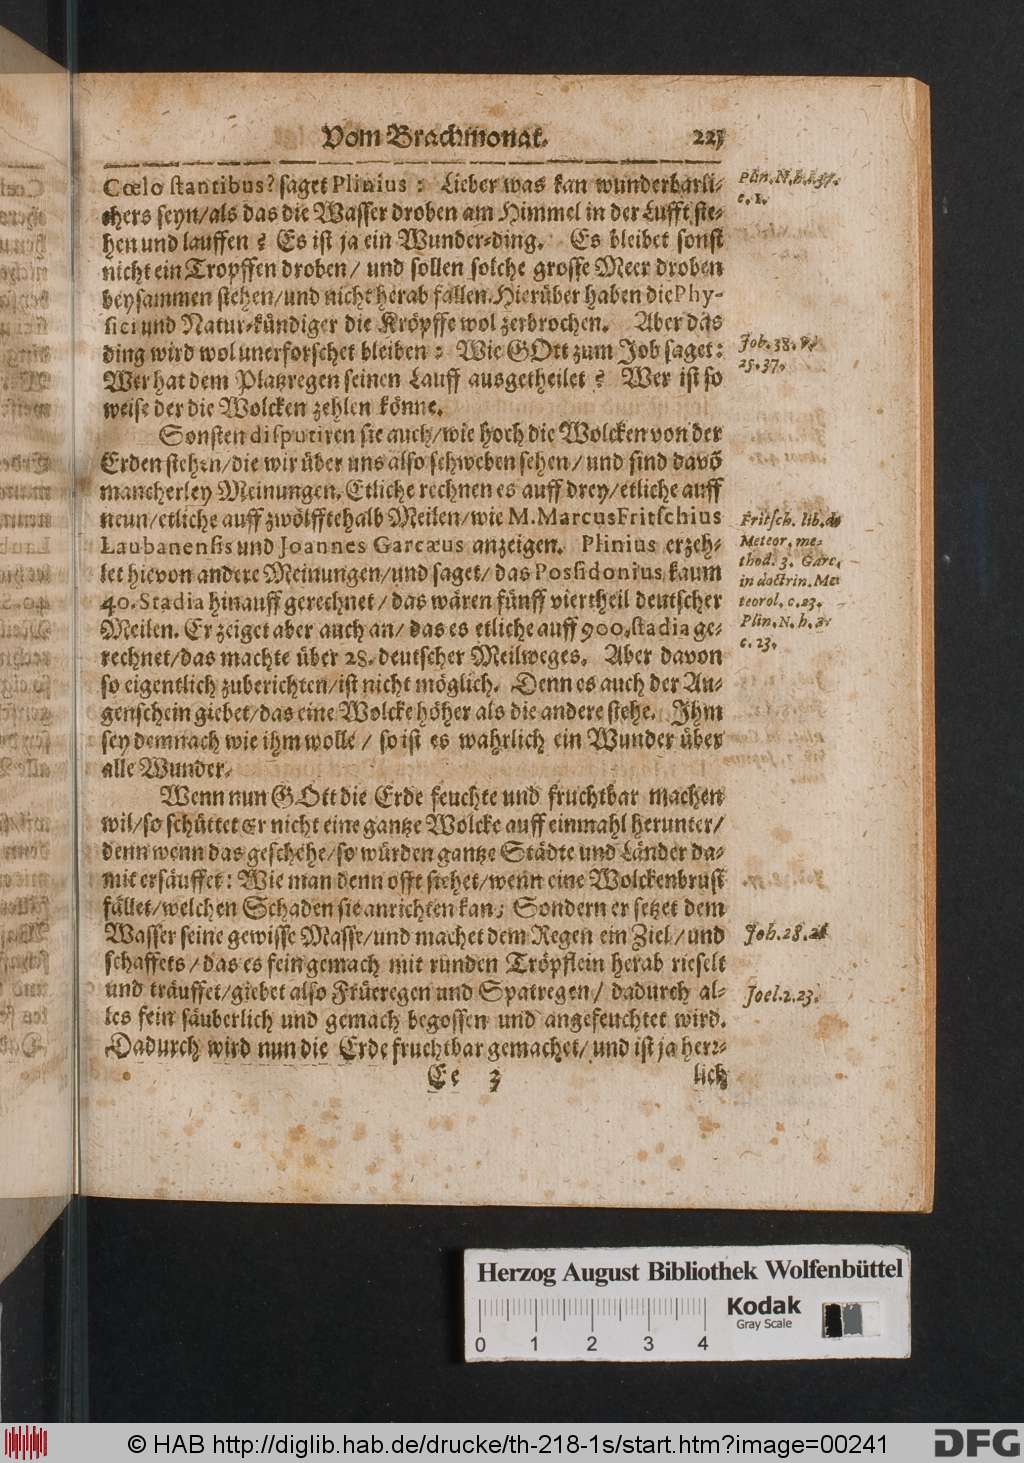 Vom Brachmonat. 221
Cœlo stantibus? saget Plinius: Lieber was kan wunderbarli-
chers seyn/als das die Wasser droben am Himmel in der Lufft ste-
hen und lauffen? Es ist ja ein Wunder-ding. Es bleibet sonst
nicht ein Tropffen droben/ und sollen solche grosse Meer droben
beysammen stehen/und nicht herab fallen. Hierüber haben die Phy-
sici und Natur-kündiger die Kröpffe wol zerbrochen. Aber das
ding wird wol unerforschet bleiben: Wie GOtt zum Job saget:
Wer hat dem Platzregen seinen Lauff ausgetheilet? Wer ist so
weise der die Wolcken zehlen könne.
Sonsten disputiren sie auch/wie hoch die Wolcken von der
Erden stehen/die wir über uns also schweben sehen/ und sind davõ
mancherley Meinungen. Etliche rechnen es auff drey/etliche auff
neun/etliche auff zwölfftehalb Meilen/wie M. Marcus Fritschius
Laubanensis und Joannes Garcæus anzeigen. Plinius erzeh-
let hievon andere Meinungen/und saget/ das Possidonius kaum
40. Stadia hinauff gerechnet/ das wären fünff viertheil deutscher
Meilen. Er zeiget aber auch an/ das es etliche auff 900. stadia ge-
rechnet/das machte über 28. deutscher Meilweges. Aber davon
so eigentlich zuberichten/ist nicht möglich. Denn es auch der Au-
genschein giebet/das eine Wolcke höher als die andere stehe. Ihm
sey demnach wie ihm wolle/ so ist es wahrlich ein Wunder über
alle Wunder.
Wenn nun GOtt die Erde feuchte und fruchtbar machen
wil/so schüttet er nicht eine gantze Wolcke auff einmahl herunter/
denn wenn das geschehe/so würden gantze Städte und Länder da-
mit ersäuffet: Wie man denn offt siehet/wenn eine Wolckenbrust
fället/welchen Schaden sie anrichten kan; Sondern er setzet dem
Wasser seine gewisse Masse/und machet dem Regen ein Ziel/und
schaffets/das es fein gemach mit runden Tröpflein herab rieselt
und träuffet/giebet also Früeregen und Spatregen/ dadurch al-
les fein säuberlich und gemach begossen und angefeuchtet wird.
Dadurch wird nun die Erde fruchtbar gemachet/ und ist ja herr-
Ee 3 lich
Plin. N. h. l. 37.
c. 1.
Job. 38. v.
25. 37.
Fritsch. lib. de
Meteor. me-
thod. 3. Garc.
in doctrin. Me
teorol. c. 23.
Plin. N. h. 2.
c. 23.
Job. 28. 26
Joel. 2. 23.
Herzog August Bibliothek Wolfenbüttel
Kodak
Gray Scale
0 1 2 3 4
© HAB http://diglib.hab.de/drucke/th-218-1s/start.htm?image=00241
DFG